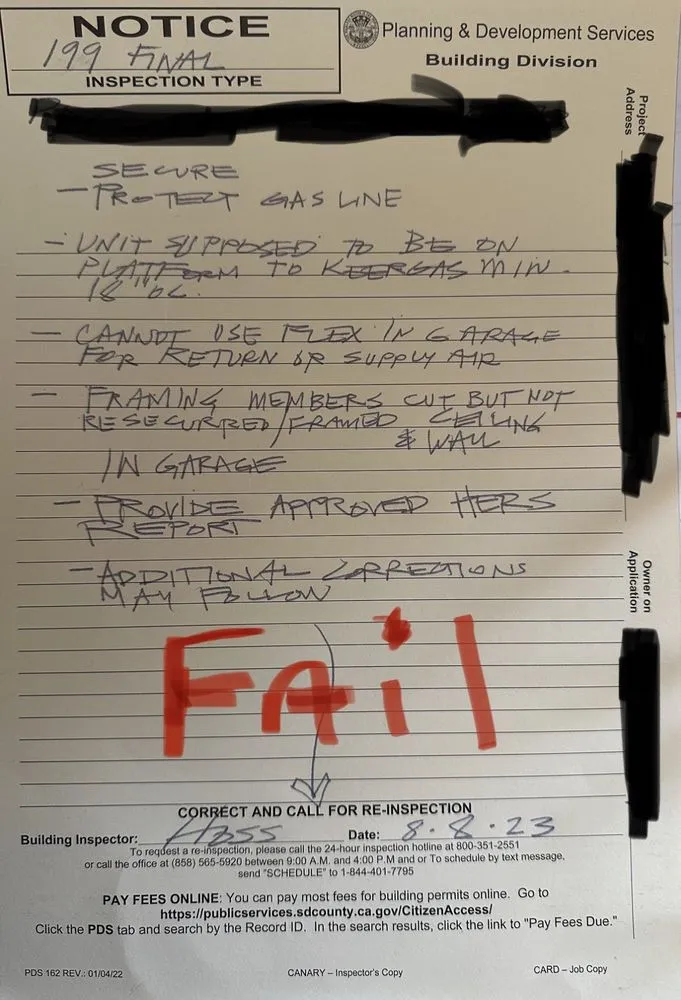 NOTICE
199 FINAL
INSPECTION TYPE
Planning & Development Services
Building Division
Project Address
SECURE
- PROTECT GAS LINE
- UNIT SUPPOSED TO BE ON
PLATFORM TO MIN.
18"
- CANNOT USE FLEX IN GARAGE
FOR RETURN OR SUPPLY AIR
- FRAMING MEMBERS CUT BUT NOT
RESECURRED/FRAMED CEILING
& WALL
IN GARAGE
- PROVIDE APPROVED HERS
REPORT
- ADDITIONAL CORRECTIONS
MAY FOLLOW
Owner on Application
FAil
CORRECT AND CALL FOR RE-INSPECTION
Building Inspector: Date: 8.8.23
To request a re-inspection, please call the 24-hour inspection hotline at 800-351-2551
or call the office at (858) 565-5920 between 9:00 A.M. and 4:00 P.M and or To schedule by text message,
send "SCHEDULE" to 1-844-401-7795
PAY FEES ONLINE: You can pay most fees for building permits online. Go to
https://publicservices.sdcounty.ca.gov/CitizenAccess/
Click the PDS tab and search by the Record ID. In the search results, click the link to "Pay Fees Due."
PDS 162 REV.: 01/04/22 CANARY – Inspector's Copy CARD – Job Copy